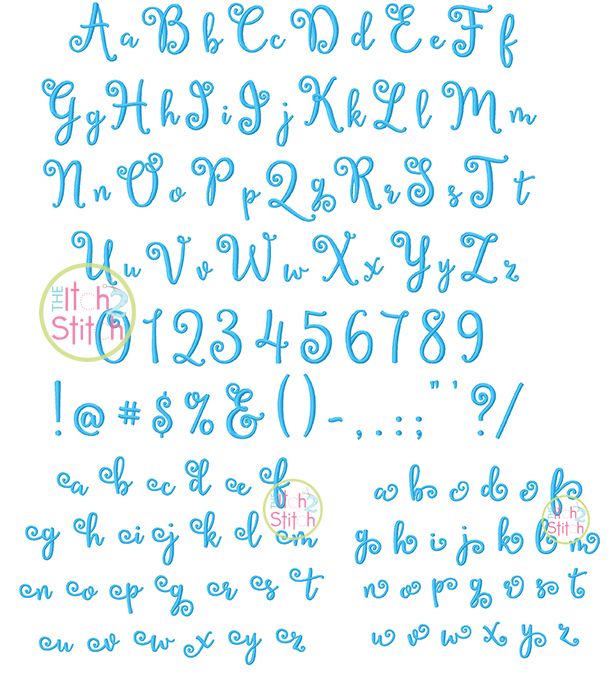 A a B b C c D d E e F f
G g H h I i J j K k L l M m
N n O o P p Q q R r S s T t
U u V v W w X x Y y Z z
THE Itch 2 Stitch
0 1 2 3 4 5 6 7 8 9
! @ # $ % & ( ) - , . : ; " ' ? /
a b c d e f
g h i j k l m
n o p q r s t
u v w x y z
THE Itch 2 Stitch
a b c d e f
g h i j k l m
n o p q r s t
u v w x y z
THE Itch 2 Stitch